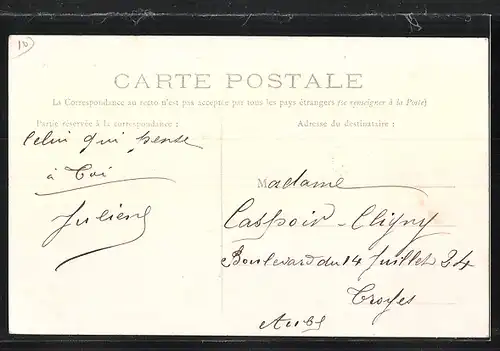 10
CARTE POSTALE
La Correspondance au recto n'est pas acceptée par tous les pays étrangers (se renseigner à la Poste)
Partie réservée à la correspondance :
Adresse du destinataire :
Celui qui pense
à Toi
Julien
Madame
Caspoir-Cligny
Boulevard du 14 Juillet 24
Troyes
Aube